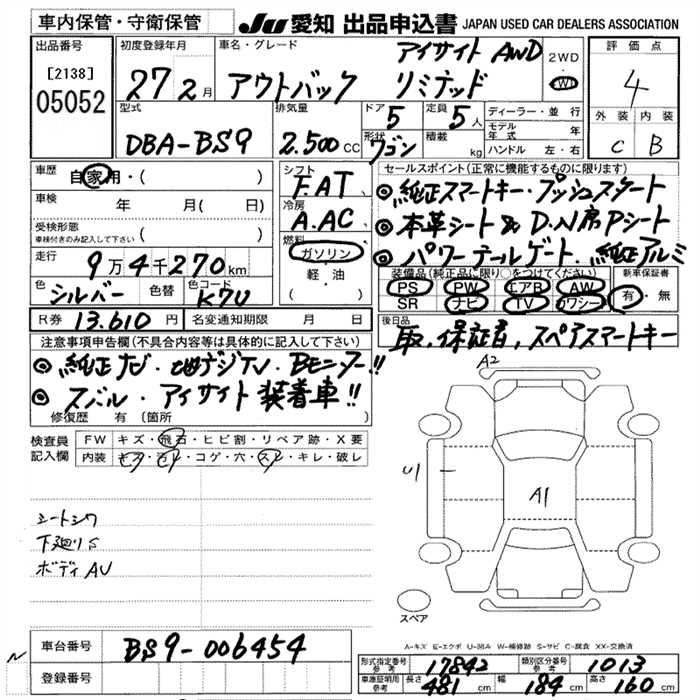 車内保管・守衛保管
JU 愛知 出品申込書 JAPAN USED CAR DEALERS ASSOCIATION
出品番号
[2138]
05052
初度登録年月
27 2月
車名・グレード
アイサイト AWD
アウトバック リミテッド
2WD
4WD
評価点
4
外装 内装
C B
型式
DBA-BS9
排気量
2.500 CC
ドア 5
形状 ワゴン
定員 5人
積載 kg
ディーラー・並行
モデル年式 年
ハンドル 左・右
車歴 自家用・( )
車検 年 月( 日)
受検形態
車検付きのみ記入して下さい ( )
走行 9万4千270km
色 シルバー 色替 色コード K7U
R券 13.610 円 名変通知期限 月 日
シフト
F.AT
冷房
A.AC
燃料
ガソリン
軽・油
( )
セールスポイント(正常に機能するものに限ります)
◎純正スマートキー・プッシュスタート
◎本革シート & D.N席Pシート
◎パワーテールゲート.純正アルミ
装備品(純正品に限り○をつけてください)
PS PW エアB AW
SR ナビ TV カワシート
新車保証書
有・無
後日品
取.保証書.スペアスマートキー
注意事項申告欄(不具合内容等は具体的に記入して下さい)
◎純正ナビ・地デジTV・Bモニター!!
◎スバル・アイサイト装着車!!
修復歴 有 (箇所 )
検査員記入欄
FW キズ・飛石・ヒビ割・リペア跡・X要
内装 キズ・汚レ・コゲ・穴・スレ・キレ・破レ
シートシワ
下廻りS
ボディAU
A2
U1
A1
スペア
A-キズ E-エクボ U-凹み W-補修跡 S-サビ C-腐食 XX-交換済
車台番号 BS9-006454
登録番号
形式指定番号 参考 17842 類別区分番号 参考 1013
車庫証明用 参考 長さ 481 cm 幅 184 cm 高さ 160 cm